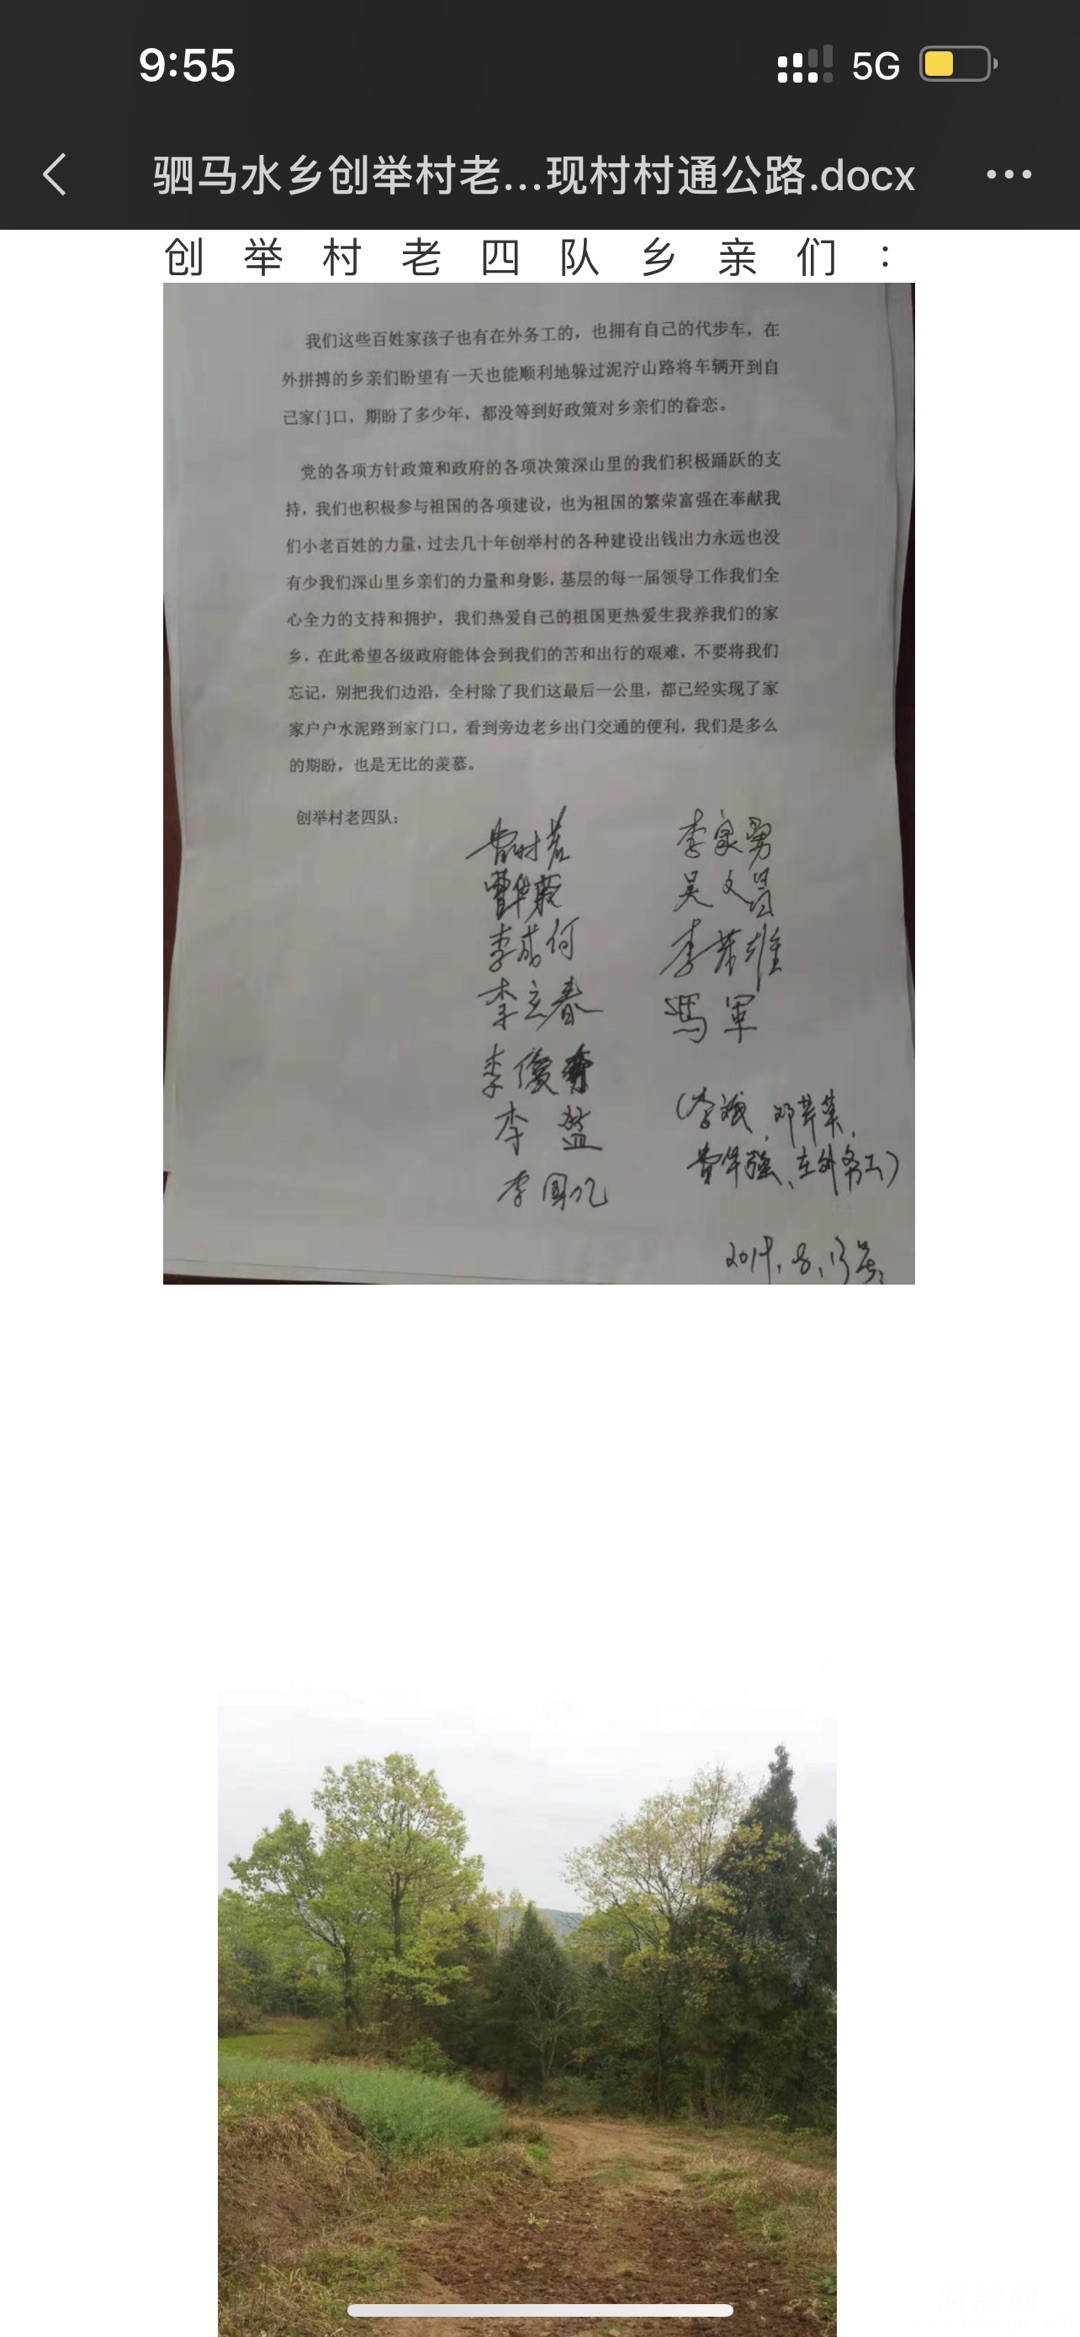 9:55
5G
驷马水乡创举村老...现村村通公路.docx
创举村老四队乡亲们：
我们这些百姓家孩子也有在外务工的，也拥有自己的代步车，在
外拼搏的乡亲们盼望有一天也能顺利地躲过泥泞山路将车辆开到自
己家门口，期盼了多少年，都没等到好政策对乡亲们的眷恋。
党的各项方针政策和政府的各项决策深山里的我们积极踊跃的支
持，我们也积极参与祖国的各项建设，也为祖国的繁荣富强在奉献我
们小老百姓的力量，过去几十年创举村的各种建设出钱出力永远也没
有少我们深山里乡亲们的力量和身影，基层的每一届领导工作我们全
心全力的支持和拥护，我们热爱自己的祖国更热爱生我养我们的家
乡，在此希望各级政府能体会到我们的苦和出行的艰难，不要将我们
忘记，别把我们边沿，全村除了我们这最后一公里，都已经实现了家
家户户水泥路到家门口，看到旁边老乡出门交通的便利，我们是多么
的期盼，也是无比的羡慕。
创举村老四队：
李家勇
吴文昌
李荣雄
李立春
馮軍
李国亿
在外务工）